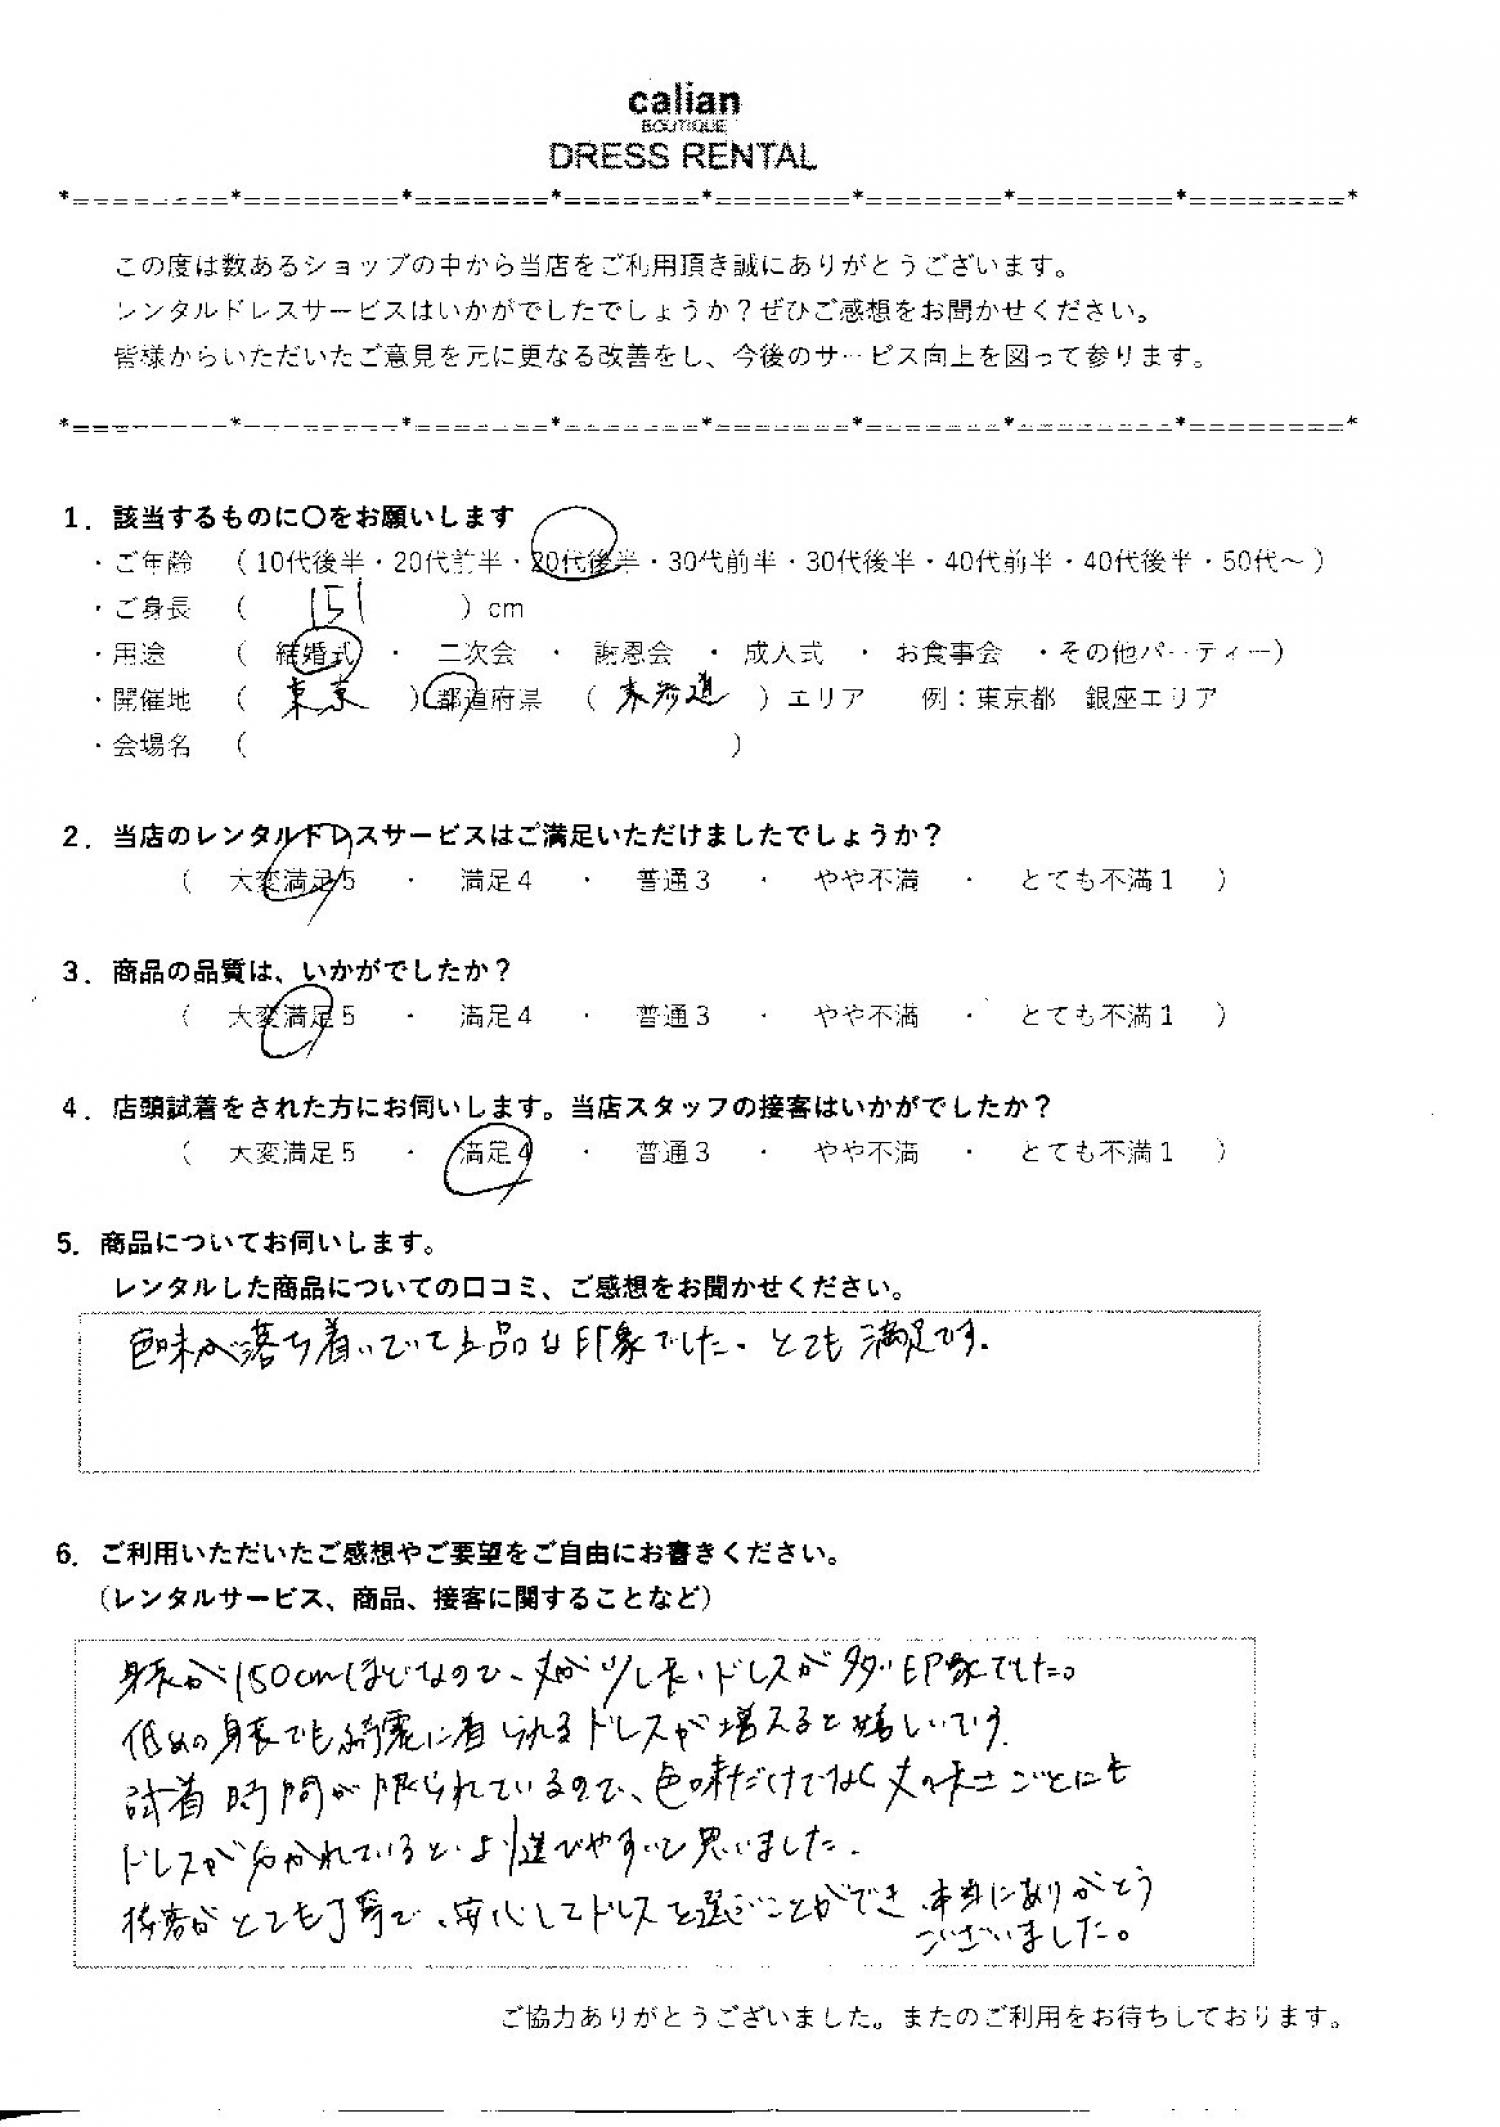 calian
BOUTIQUE
DRESS RENTAL
*========*========*=======*=======*=======*=======*========*========*
この度は数あるショップの中から当店をご利用頂き誠にありがとうございます。
レンタルドレスサービスはいかがでしたでしょうか？ぜひご感想をお聞かせください。
皆様からいただいたご意見を元に更なる改善をし、今後のサービス向上を図って参ります。
*========*========*=======*=======*=======*=======*========*========*
1．該当するものに〇をお願いします
・ご年齢 （10代後半・20代前半・20代後半・30代前半・30代後半・40代前半・40代後半・50代～）
・ご身長 （ 151 ）cm
・用途 （ 結婚式 ・ 二次会 ・ 謝恩会 ・ 成人式 ・ お食事会 ・その他パーティー）
・開催地 （ 東京 ）都道府県 （ 表参道 ）エリア 例：東京都 銀座エリア
・会場名 （ ）
2．当店のレンタルドレスサービスはご満足いただけましたでしょうか？
（ 大変満足5 ・ 満足4 ・ 普通3 ・ やや不満 ・ とても不満1 ）
3．商品の品質は、いかがでしたか？
（ 大変満足5 ・ 満足4 ・ 普通3 ・ やや不満 ・ とても不満1 ）
4．店頭試着をされた方にお伺いします。当店スタッフの接客はいかがでしたか？
（ 大変満足5 ・ 満足4 ・ 普通3 ・ やや不満 ・ とても不満1 ）
5．商品についてお伺いします。
レンタルした商品についての口コミ、ご感想をお聞かせください。
色味が落ち着いていて上品な印象でした。とても満足です。
6．ご利用いただいたご感想やご要望をご自由にお書きください。
（レンタルサービス、商品、接客に関することなど）
身長が150cmほどなので、丈が少し長いドレスが多い印象でした。
低めの身長でも綺麗に着られるドレスが増えると嬉しいです。
試着時間が限られているので、色味だけでなく丈の長さごとにも
ドレスが分かれているとより選びやすいと思いました。
接客がとても丁寧で、安心してドレスを選ぶことができ、本当にありがとう
ございました。
ご協力ありがとうございました。またのご利用をお待ちしております。